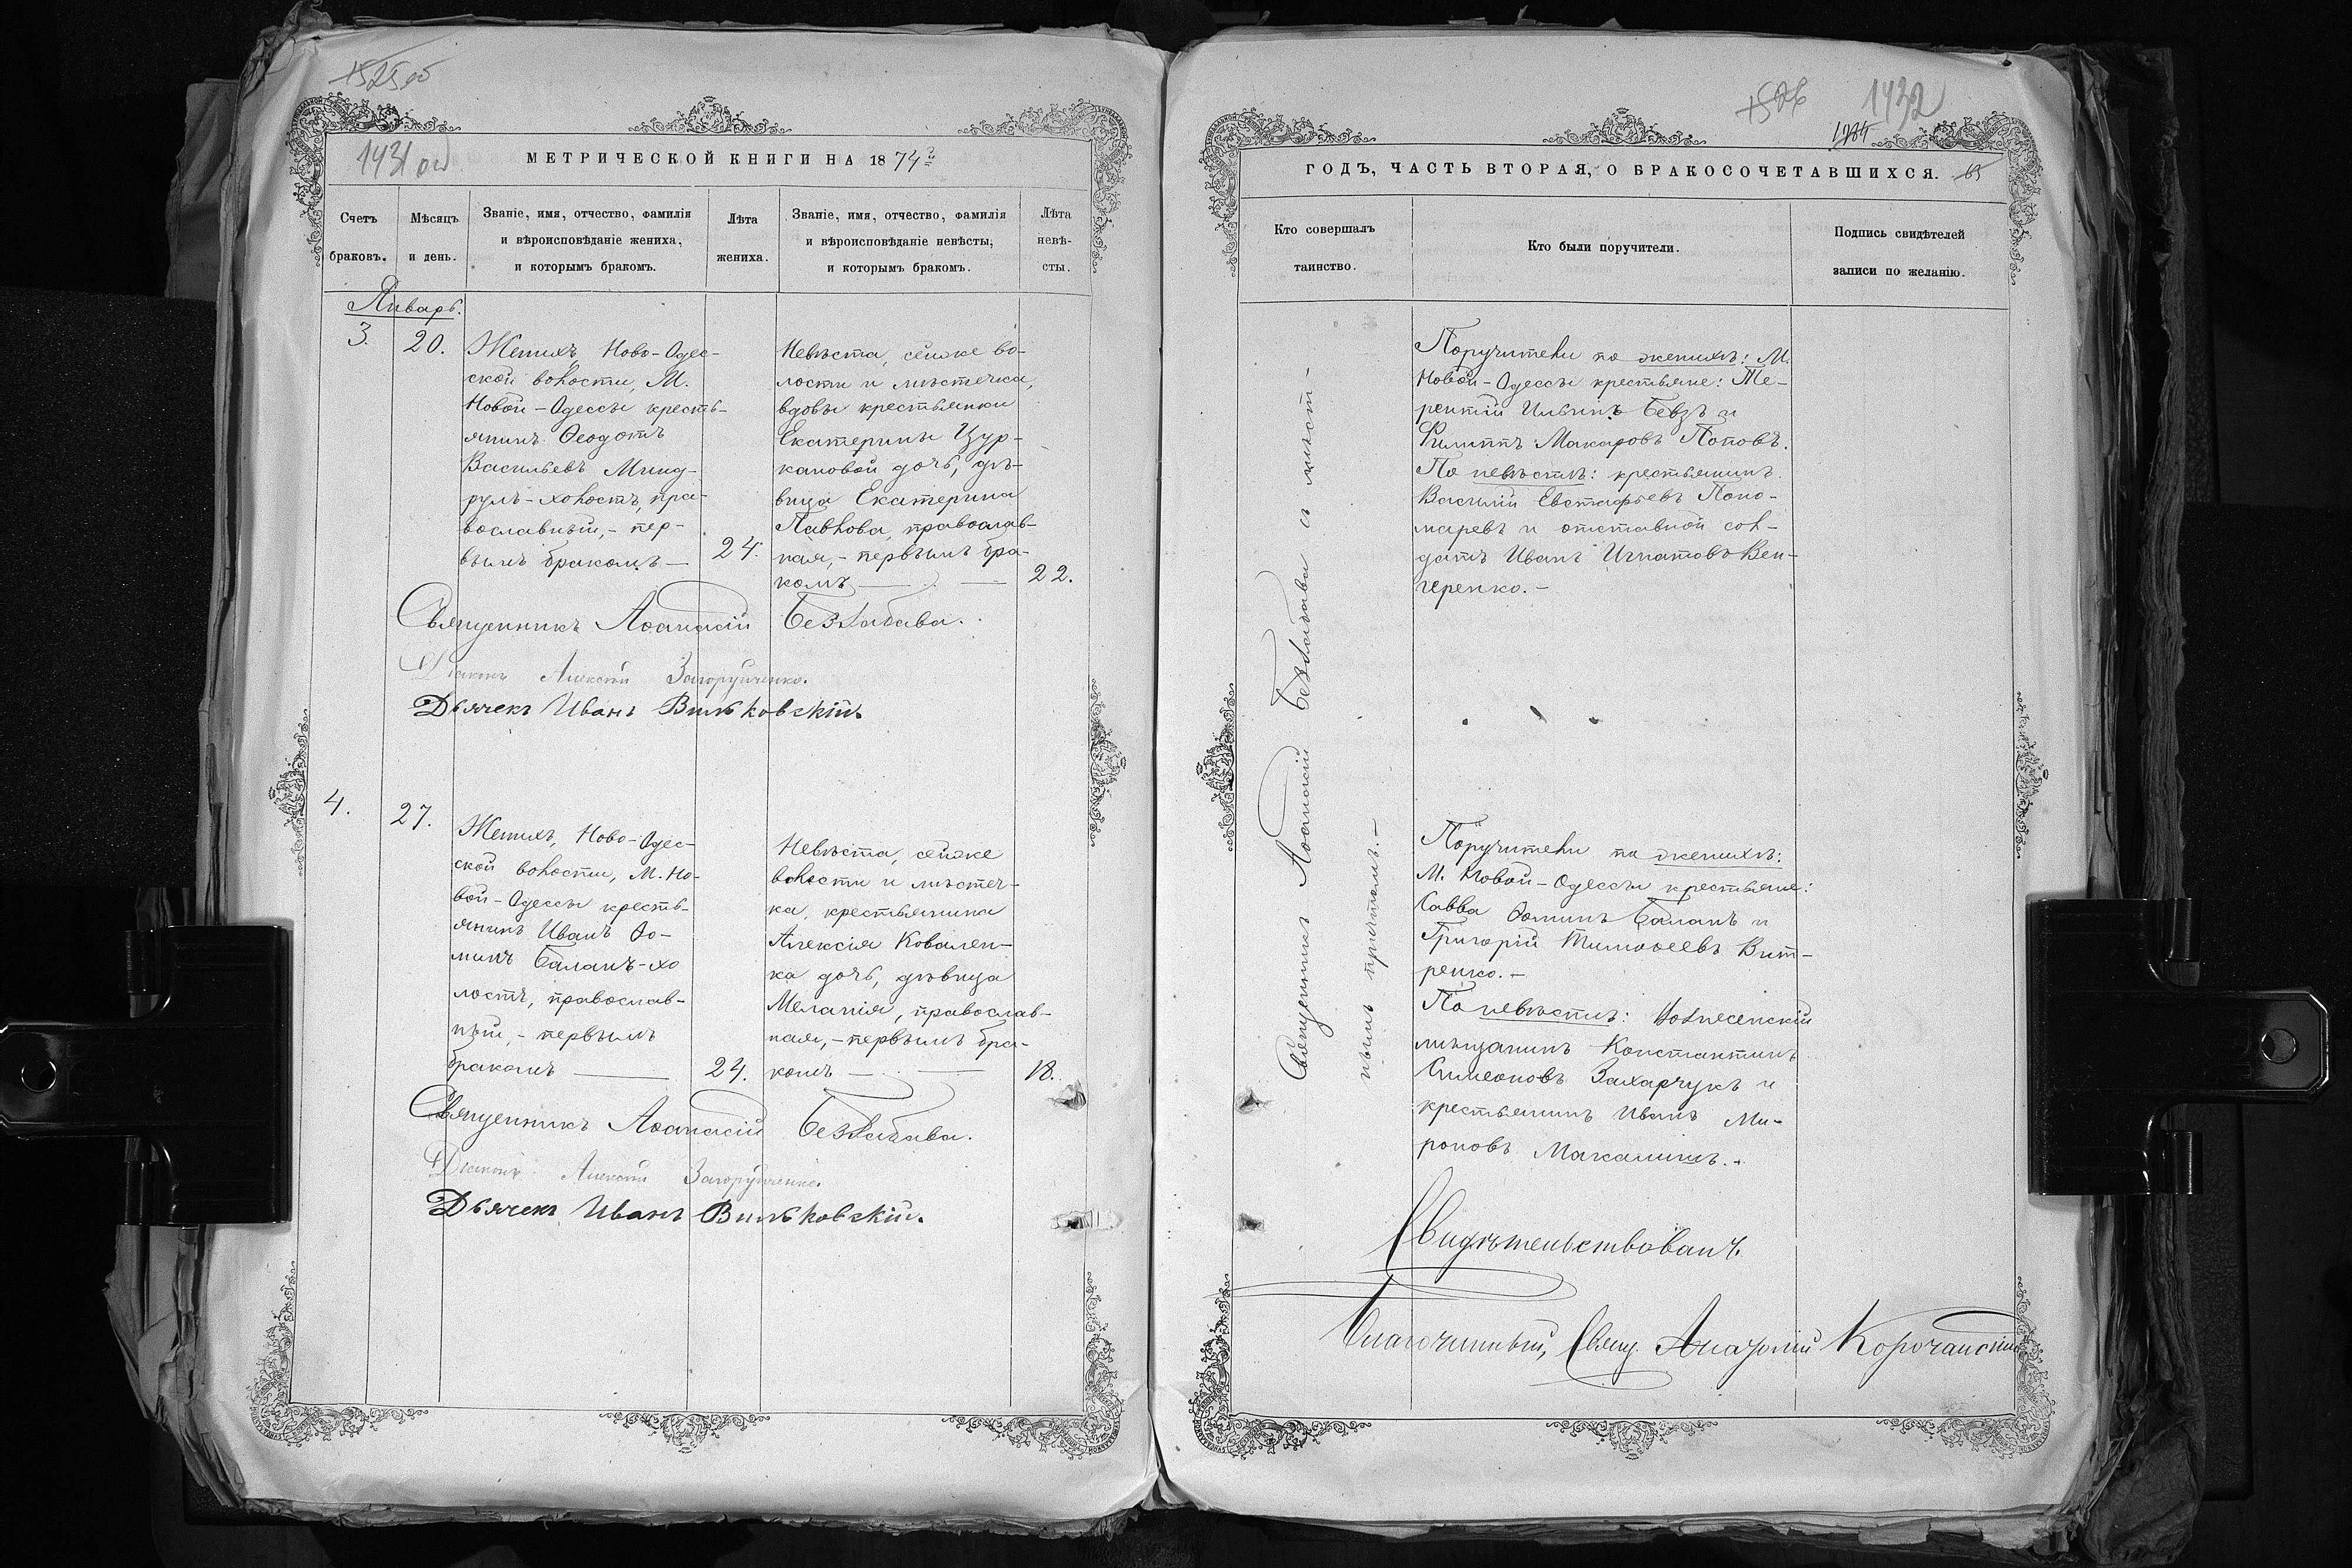 1525 об
1431 об
МЕТРИЧЕСКОЙ КНИГИ НА 1874й
Счетъ
браковъ.
Мѣсяцъ
и день.
Званіе, имя, отчество, фамилія
и вѣроисповѣданіе жениха,
и которымъ бракомъ.
Лѣта
жениха.
Званіе, имя, отчество, фамилія
и вѣроисповѣданіе невѣсты,
и которымъ бракомъ.
Лѣта
невѣ-
сты.
Январь.
3.
20.
Женихъ, Ново-Одес-
ской волости, М.
Новой-Одессы кресть-
янинъ Ѳеодотъ
Васильевъ Минд-
рулъ-холостъ, пра-
вославный,- пер-
вымъ бракомъ —
24.
Невѣста, сейже во-
лости и мѣстечка,
вдовы крестьянки
Екатерины Цур-
кановой дочь, дѣ-
вица Екатерина
Павлова, православ-
ная,- первымъ бра-
комъ —
22.
Священникъ Аѳанасій Беззабава.
Діаконъ Алексій Загоруйченко.
Дьячекъ Иванъ Вильковскій.
4.
27.
Женихъ, Ново-Одес-
ской волости, М. Но-
вой-Одессы кресть-
янинъ Иванъ Ѳо-
минъ Баланъ-хо
лостъ, православ-
ный,- первымъ
бракомъ —
24.
Невѣста, сейже
волости и мѣстеч-
ка, крестьянина
Алексія Ковален-
ка дочь, дѣвица
Меланія, православ-
ная,- первымъ бра-
комъ —
18.
Священникъ Аѳанасій Беззабава.
Діаконъ Алексій Загоруйченко.
Дьячекъ Иванъ Вильковскій.
1526
1432
ГОДЪ, ЧАСТЬ ВТОРАЯ, О БРАКОСОЧЕТАВШИХСЯ.
Кто совершалъ
таинство.
Кто были поручители.
Подпись свидѣтелей
записи по желанію.
Священникъ Аѳанасій Беззабава съ мѣст-
нымъ причтомъ.-
Поручители по женихѣ: М.
Новой-Одессы крестьяне: Те-
рентій Ильинъ Бевзъ и
Филиппъ Макаровъ Поповъ.
По невѣстѣ: крестьянинъ
Василій Евстафьевъ Поно-
маревъ и отставной сол-
датъ Иванъ Игнатовъ Вен-
геренко.-
Поручители по женихѣ:
М. Новой-Одессы крестьяне:
Савва Ѳоминъ Баланъ и
Григорій Тимоѳеевъ Вит-
ренко.-
По невѣстѣ: Вознесенскій
мѣщанинъ Константинъ
Симеоновъ Захарчукъ и
крестьянинъ Иванъ Ми-
роновъ Макалишъ.-
Свидѣтельствовалъ.
Благочинный, Свящ. Анатолій Корочанскій